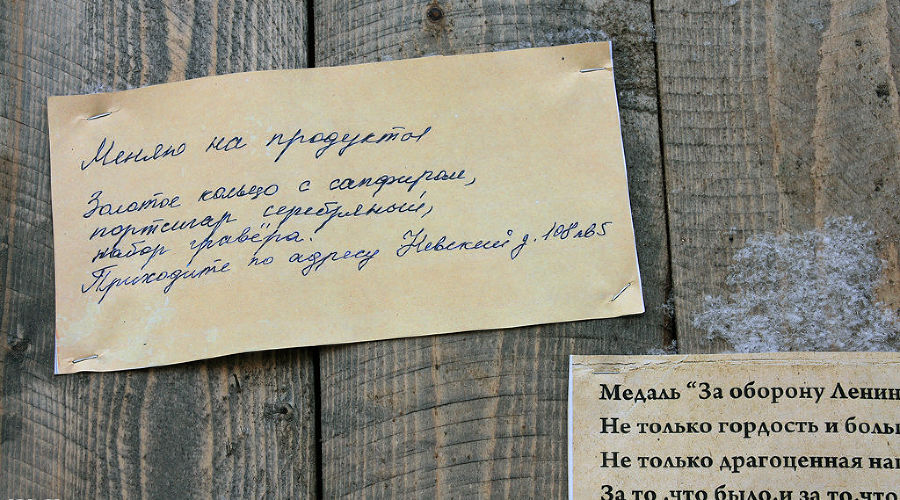 Меняю на продукты
Золотое кольцо с сапфиром,
портсигар серебряный,
набор гравёра.
Приходите по адресу Невский д. 108 кв 5
Медаль “За оборону Ленин
Не только гордость и боль
Не только драгоценная
За то ,что было,и за то,что